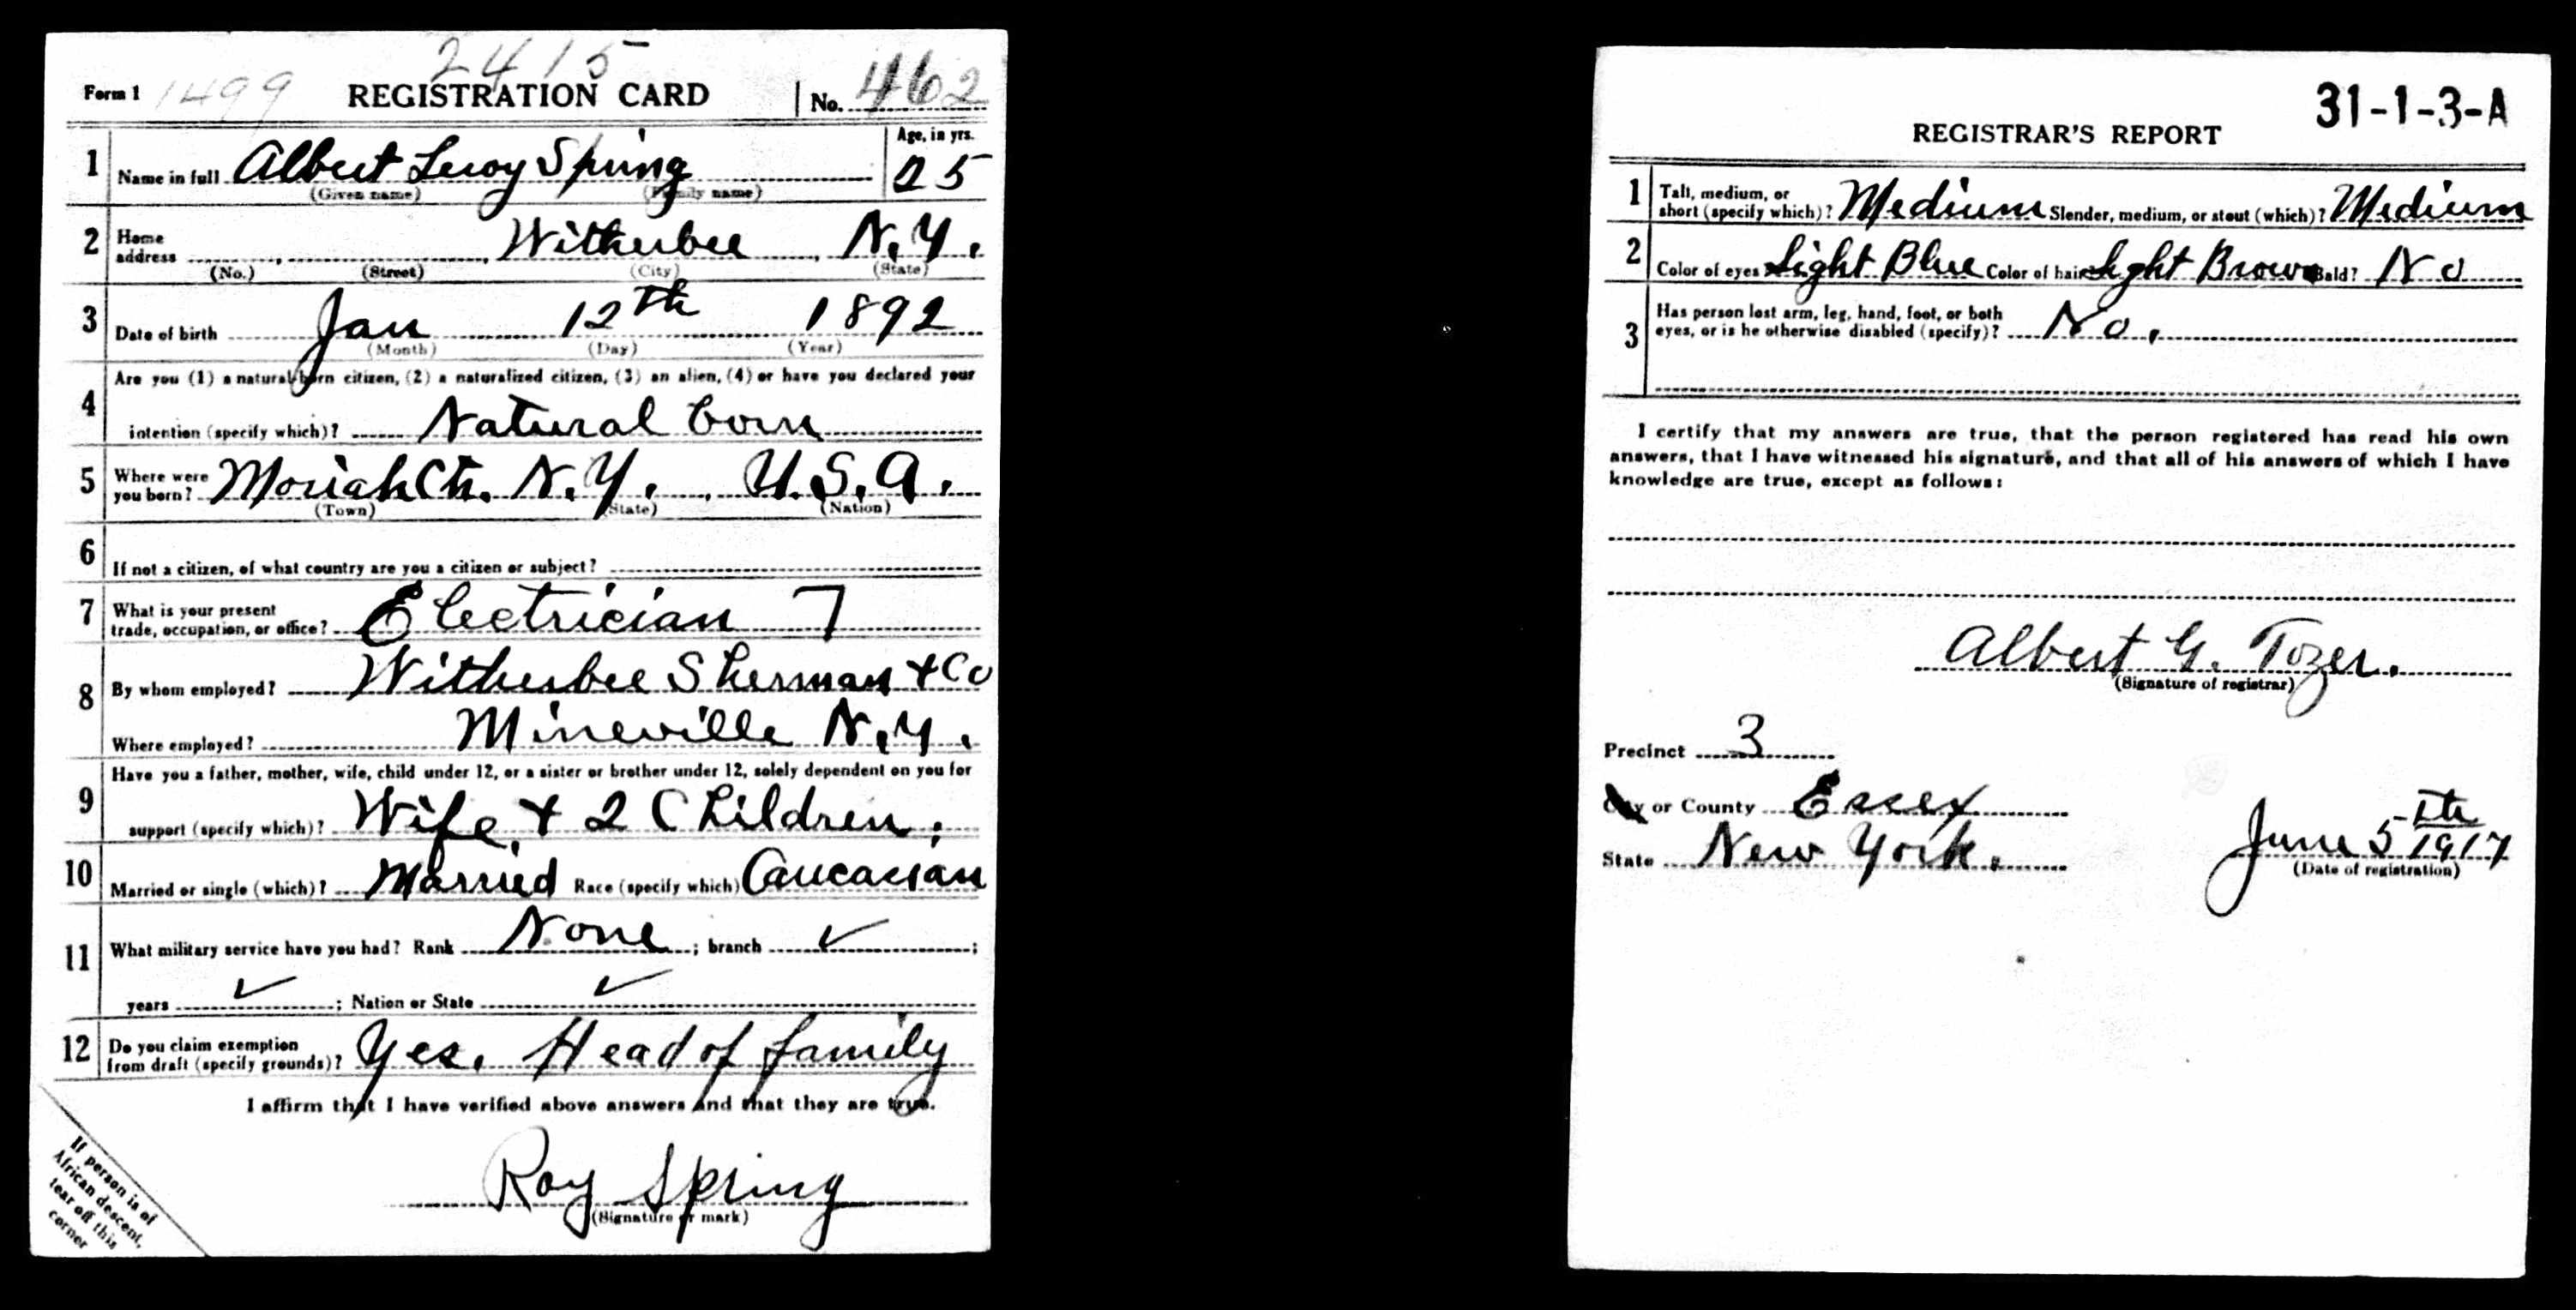 2415
Form 1 1499 REGISTRATION CARD No. 462
1 Name in full Albert Leroy Spring Age, in yrs. 25
(Given name) (Family name)
2 Home address Witherbee N.Y.
(No.) (Street) (City) (State)
3 Date of birth Jan 12th 1892
(Month) (Day) (Year)
4 Are you (1) a natural-born citizen, (2) a naturalized citizen, (3) an alien, (4) or have you declared your
intention (specify which)? Natural born
5 Where were you born? Moriah Ctr. N.Y. U.S.A.
(Town) (State) (Nation)
6 If not a citizen, of what country are you a citizen or subject?
7 What is your present trade, occupation, or office? Electrician 7
8 By whom employed? Witherbee Sherman + Co
Where employed? Mineville N.Y.
9 Have you a father, mother, wife, child under 12, or a sister or brother under 12, solely dependent on you for
support (specify which)? Wife, + 2 Children.
10 Married or single (which)? Married Race (specify which) Caucasian
11 What military service have you had? Rank None ; branch ✓ ;
years ✓ ; Nation or State ✓
12 Do you claim exemption from draft (specify grounds)? Yes. Head of family
I affirm that I have verified above answers and that they are true.
Roy Spring
(Signature or mark)
If person is of
African descent,
tear off this
corner
31-1-3-A
REGISTRAR'S REPORT
1 Tall, medium, or short (specify which)? Medium Slender, medium, or stout (which)? Medium
2 Color of eyes Light Blue Color of hair Light Brown Bald? No
3 Has person lost arm, leg, hand, foot, or both eyes, or is he otherwise disabled (specify)? No.
I certify that my answers are true, that the person registered has read his own
answers, that I have witnessed his signature, and that all of his answers of which I have
knowledge are true, except as follows:
Albert G. Tozer.
(Signature of registrar)
Precinct 3
City or County Essex
State New York. June 5th 1917
(Date of registration)